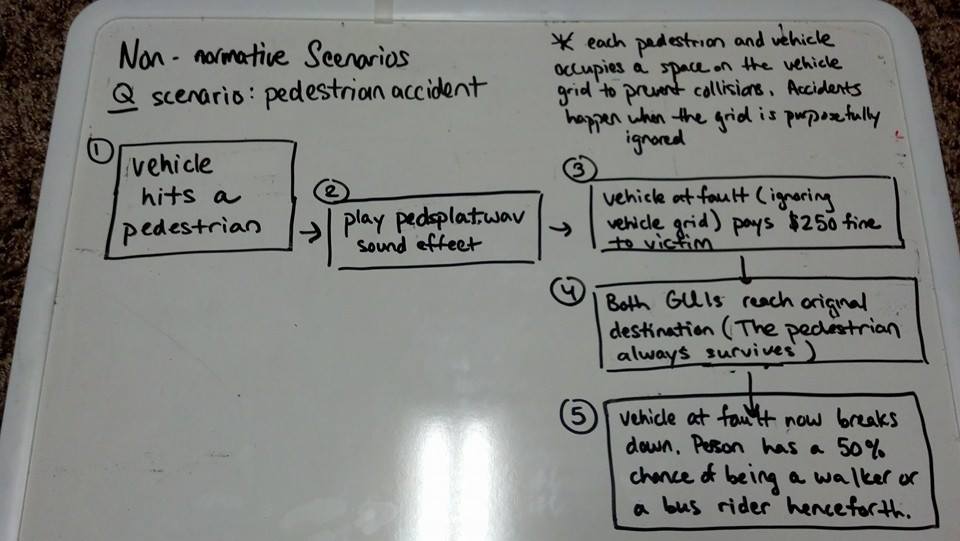 Non-normative Scenarios
Q scenario: pedestrian accident
* each pedestrian and vehicle
occupies a space on the vehicle
grid to prevent collisions. Accidents
happen when the grid is purposefully
ignored
1
vehicle
hits a
pedestrian
2
play pedsplat.wav
sound effect
3
vehicle at fault (ignoring
vehicle grid) pays $250 fine
to victim
4
Both GUIs reach original
destination (The pedestrian
always survives)
5
vehicle at fault now breaks
down. Person has a 50%
chance of being a walker or
a bus rider henceforth.